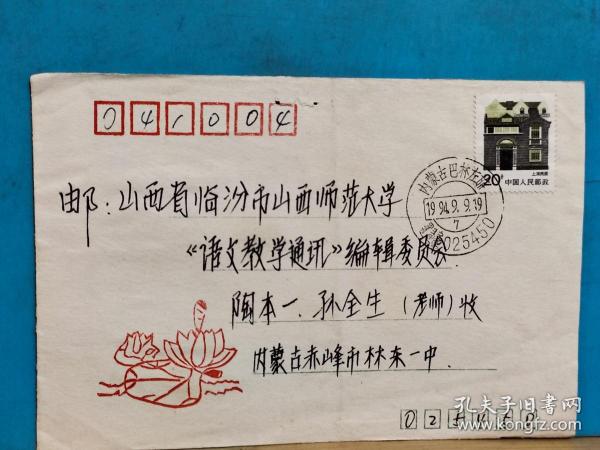 041004
上海民居
20分 中国人民邮政
内蒙古巴林左旗
1994.9.9.19
7
025450
邮：山西省临汾市山西师范大学
《语文教学通讯》编辑委员会
陶本一、孙全生（老师）收
内蒙古赤峰市林东一中.
025450
孔夫子旧书网
kongfz.com